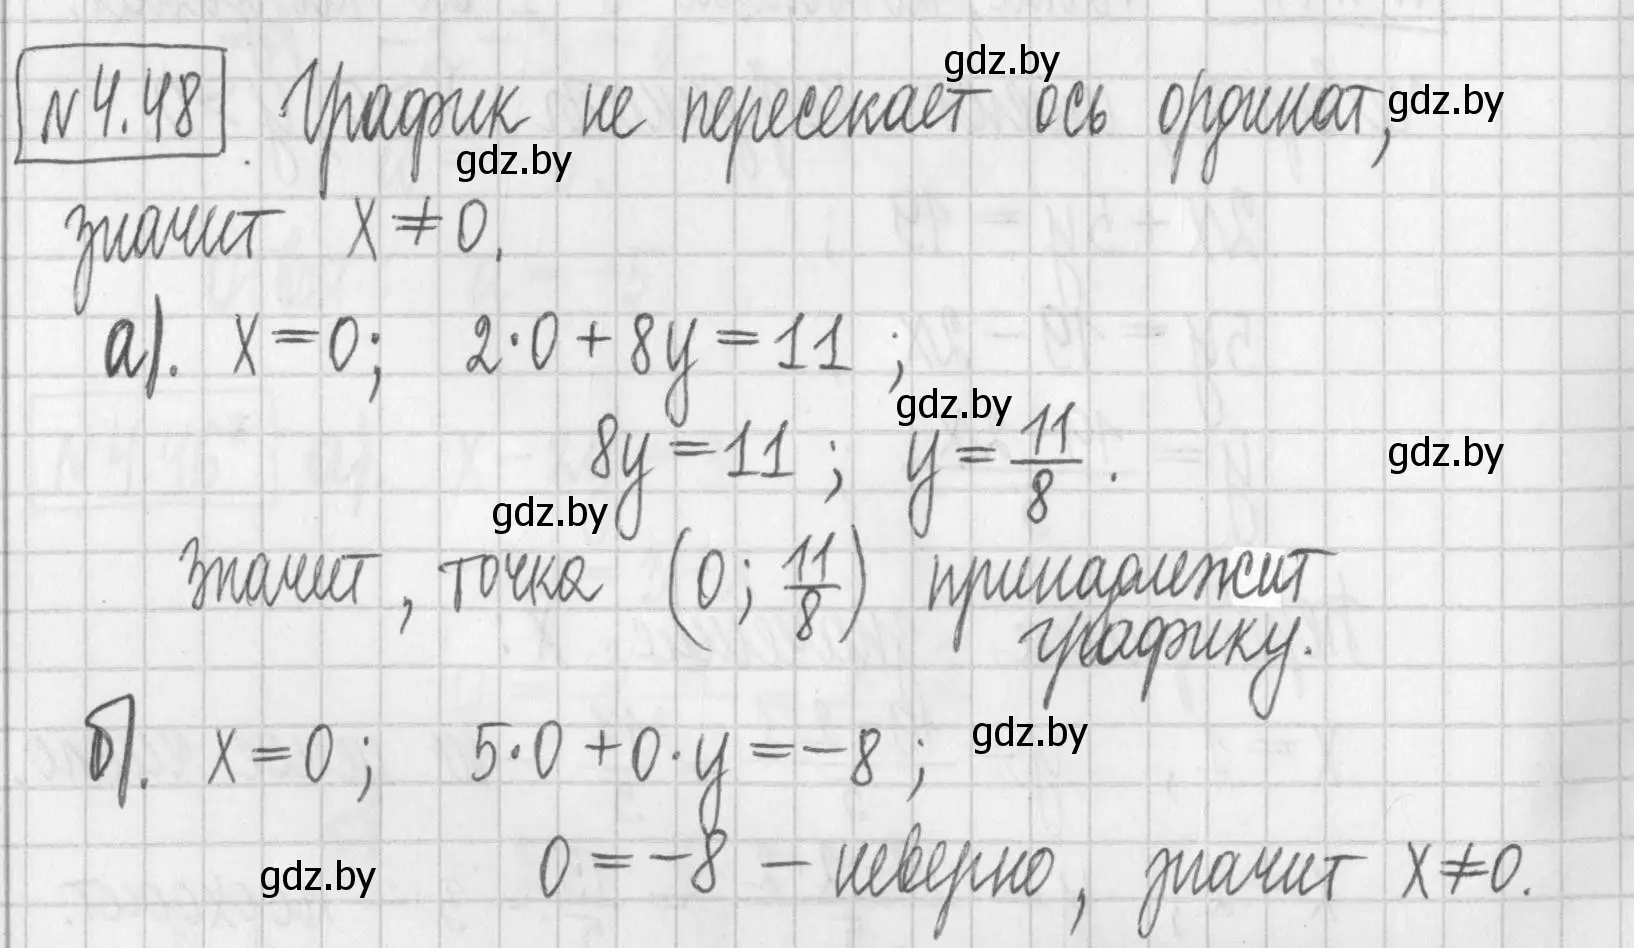 №4.48. График не пересекает ось ординат,
значит x ≠ 0.
а). x = 0; 2·0 + 8y = 11 ;
8y = 11 ; y = 11/8 .
значит, точка (0; 11/8) принадлежит
графику.
б). x = 0; 5·0 + 0·y = -8 ;
0 = -8 - неверно, значит x ≠ 0.
gdz.by
gdz.by
gdz.by
gdz.by
gdz.by
gdz.by
gdz.by
gdz.by